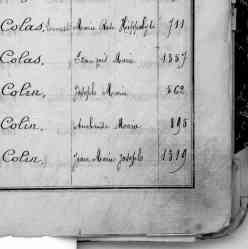 Colas, Marie Rose Hippolyte 711
Colas, François Marie 1337
Colin, Joseph Marie 562
Colin, Marie 895
Colin, Jean Marie Joseph 1319